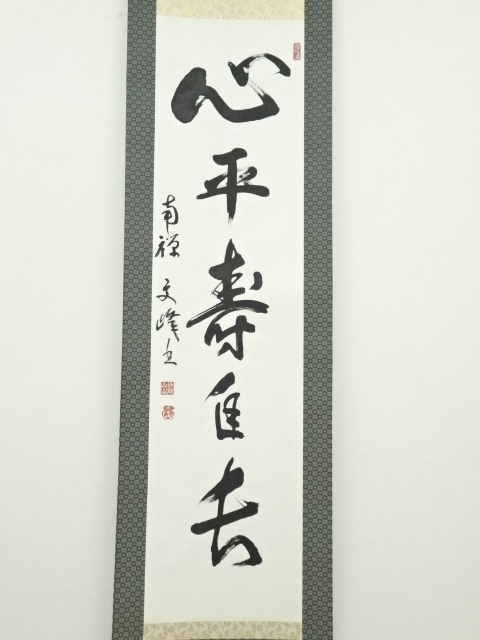 心平寿自長
南禅 文峰書